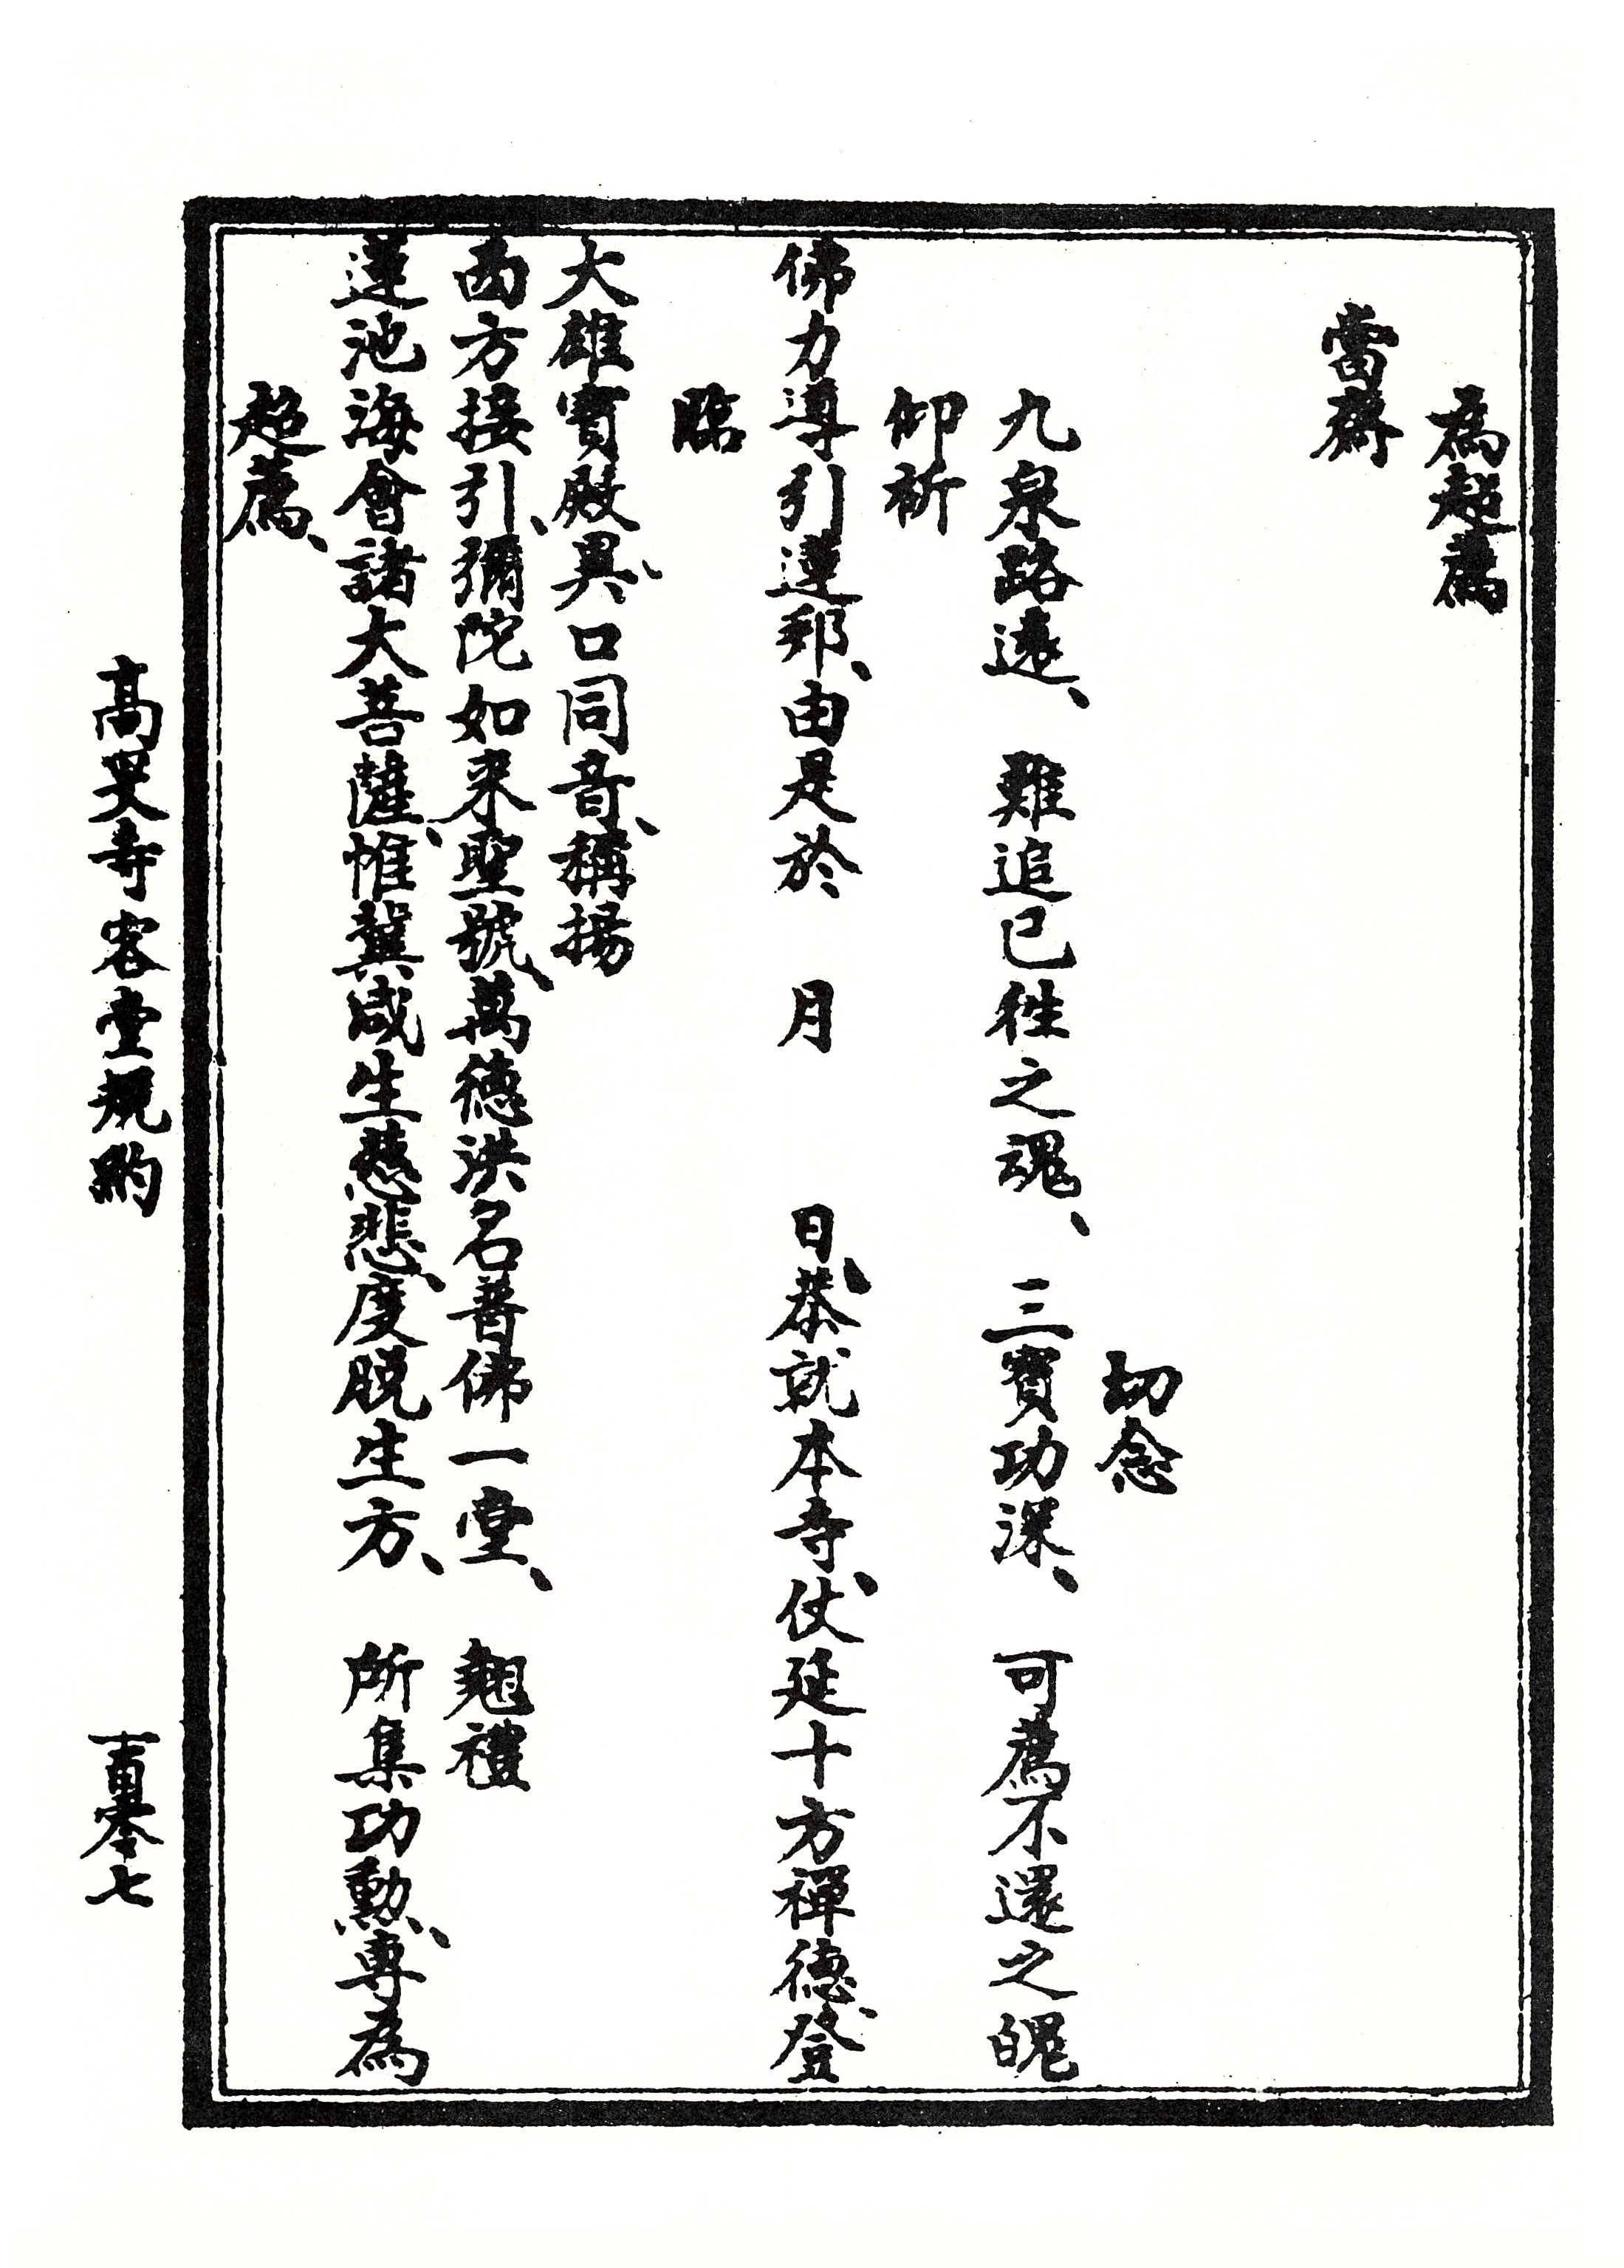 為超薦
當齋
切念
九泉路遠、　難追已往之魂、　三寶功深、　可薦不還之魄
仰祈
佛力導引蓮邦、由是於　月　日、恭就本寺、仗延十方禪德、登
臨
大雄寶殿、異口同音、稱揚
西方接引、彌陀如來聖號、萬德洪名普佛一堂、　翹禮
蓮池海會諸大菩薩、惟冀咸生慈悲、度脫生方、　所集功勳、專為
超薦、
高旻寺客堂規約
一百零七